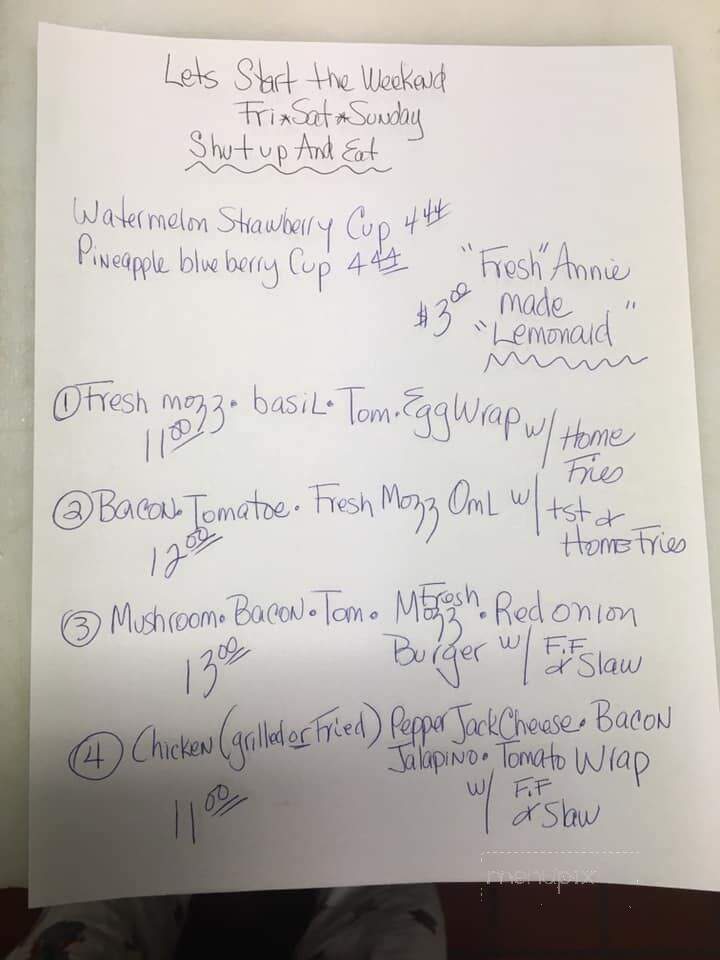 Lets Start the Weekend
Fri*Sat*Sunday
Shut up And Eat
Watermelon Strawberry Cup 4 44
Pineapple blueberry Cup 4 44
"Fresh" Annie
made
$3 00
"Lemonaid"
① Fresh mozz. basil. Tom. Egg Wrap w/ Home
Fries
11 00
② Bacon. Tomatoe. Fresh Mozz Oml w/ tst &
Home Fries
12 00
③ Mushroom. Bacon. Tom. Fresh Mozz. Red onion
Burger w/ F.F
& Slaw
13 00
④ Chicken (grilled or Fried) Pepper Jack Cheese. Bacon
Jalapino. Tomato Wrap
w/ F.F
& Slaw
11 00
menupix